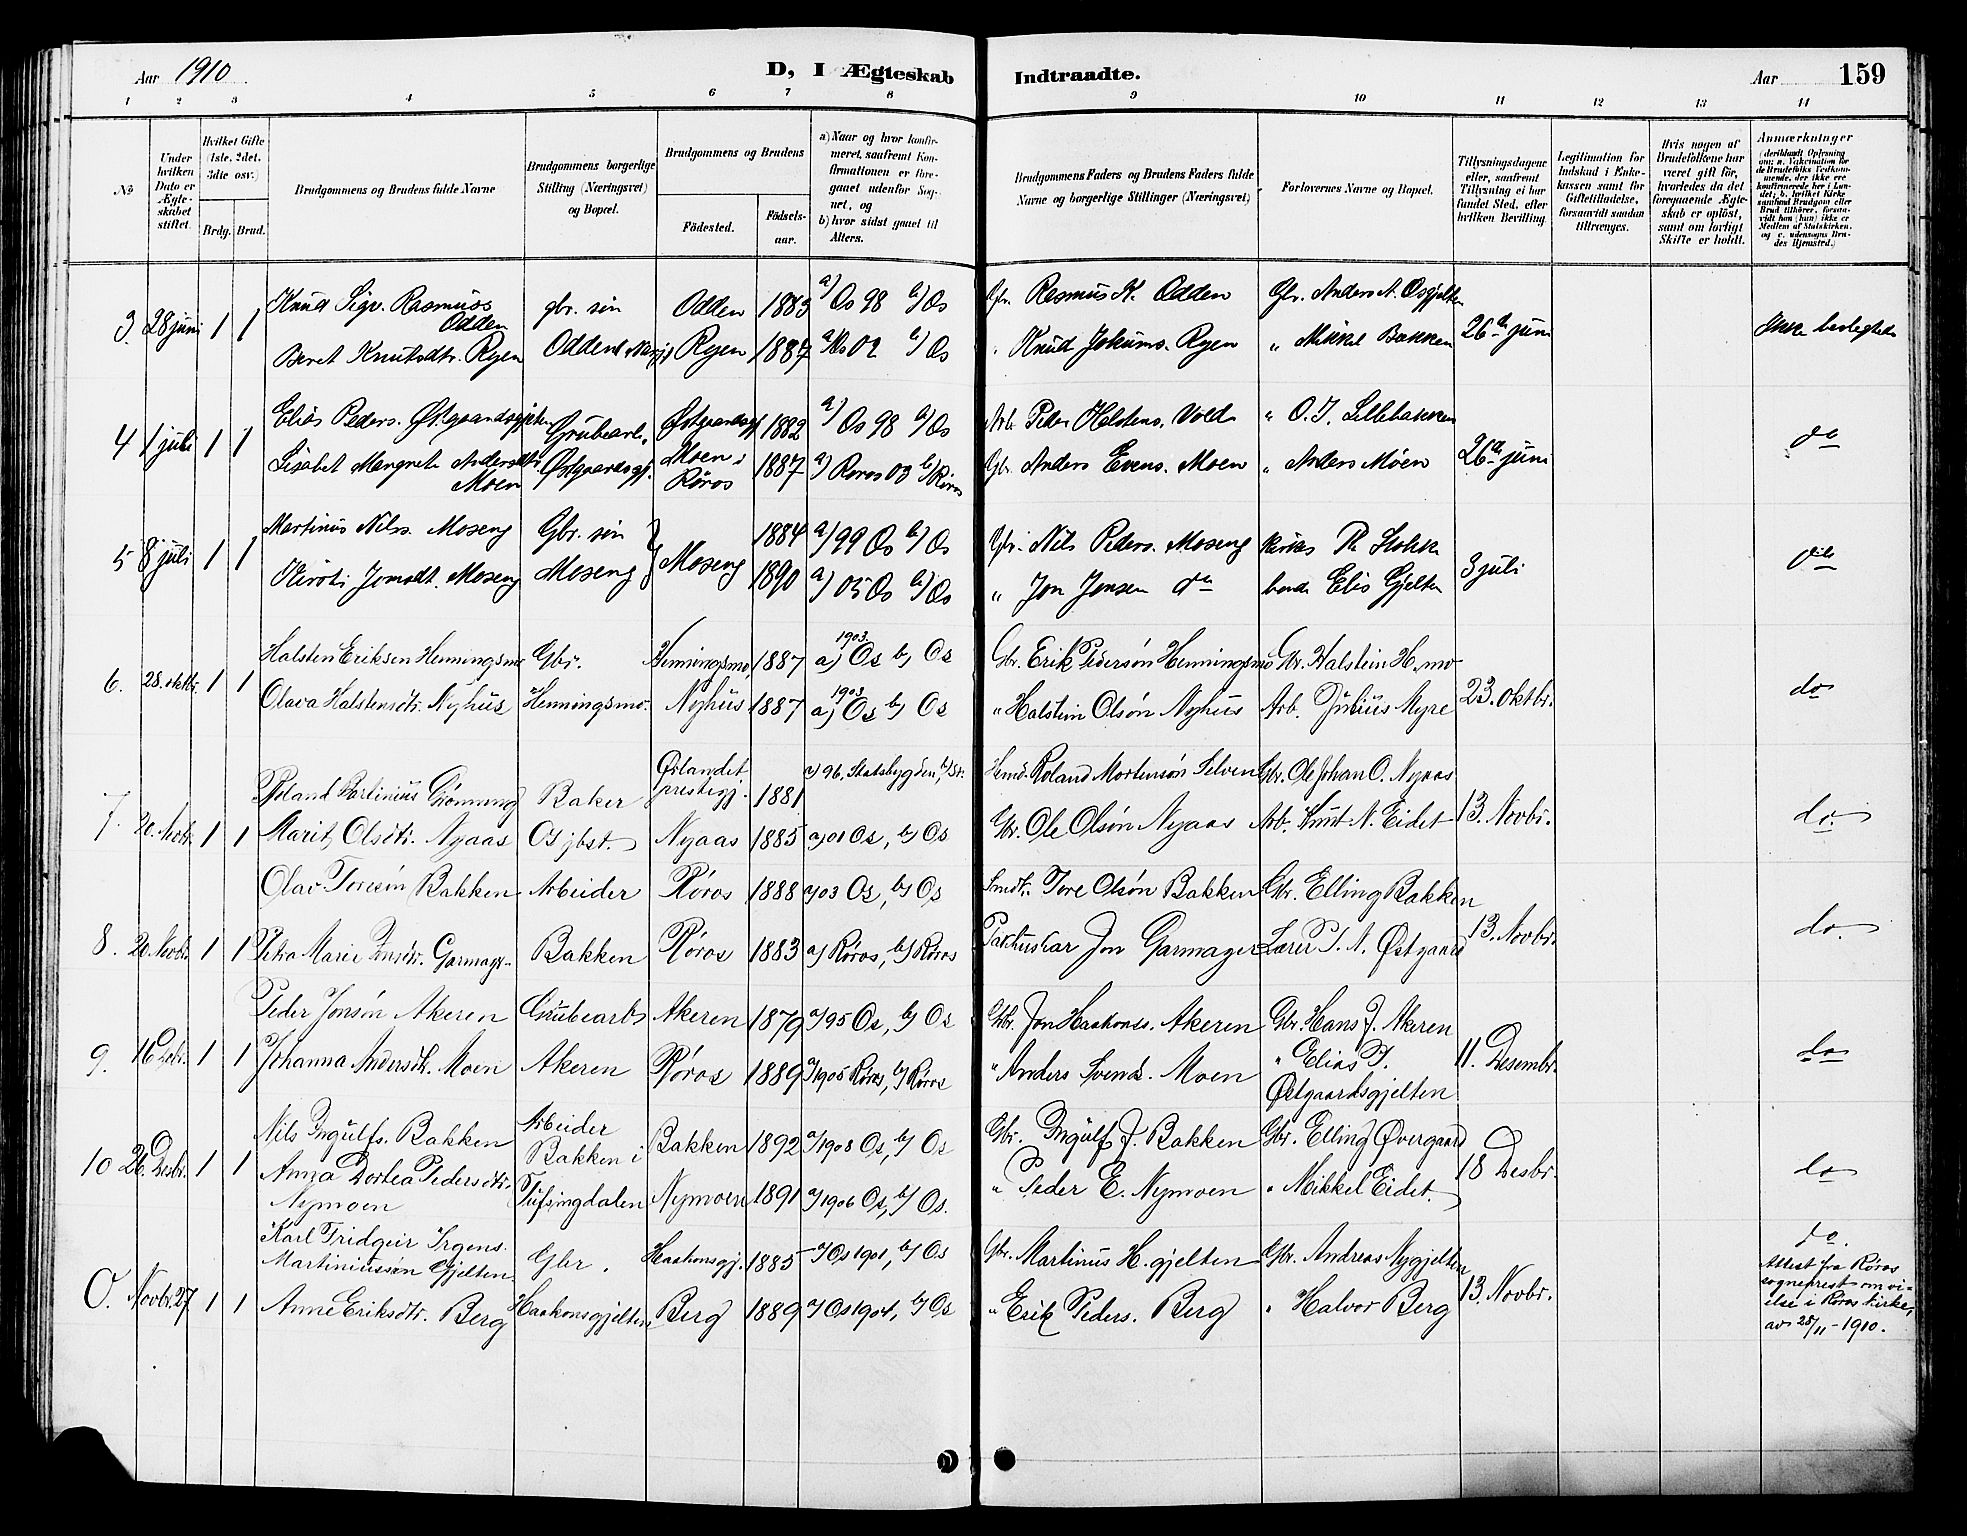 Aar 1910
D, I Ægteskab Indtraadte.
Aar 159
1 2 3 4 5 6 7 8 9 10 11 12 13 14
No
Under hvilken Dato er Ægteskabet stiftet.
Hvilket Gifte (1ste, 2det, 3die osv.)
Brdg. Brud.
Brudgommens og Brudens fulde Navne
Brudgommens borgerlige Stilling (Næringsvei) og Bopæl.
Brudgommens og Brudens
Fødested.
Fødselsaar.
a) Naar og hvor konfirmeret, saafremt Konfirmationen er foregaaet udenfor Sognet, og
b) hvor sidst gaaet til Alters.
Brudgommens Faders og Brudens Faders fulde Navne og borgerlige Stillinger (Næringsvei)
Forlovernes Navne og Bopæl.
Tillysningsdagene eller, saafremt Tillysning ei har fundet Sted, efter hvilken Bevilling.
Legitimation for Indskud i Enkekassen samt for Giftetilladelse, forsaavidt saadan tiltrænges.
Hvis nogen af Brudefolkene har været gift før, hvorledes da det foregaaende Ægteskab er opløst, samt om lovligt Skifte er holdt.
Anmærkninger
3. 28 juni 1 1
Knud Sigv. Rasmuss Odden
gbr. søn
Odden 1883 a) Os 98 b) Os
Gbr. Rasmus K. Odden
Gbr. Anders N. Osgjelten
26de juni
Ikke beslegtede
Beret Knutsdtr. Ryen
Ryen 1887 a) Os 02 b) Os
" Knud Jokums. Ryen
" Mikkel Bakken
4 1 juli 1 1
Elias Peders. Østgaardsgjelten
Grubearb.
Østgaardsgj 1882 a) Os 98 b) Os
Arb. Peder Halstens. Vold
" O. J. Lillebakken
26de juni
do
Lisabet Margrete Andersdtr. Moen
Østgaardsgj.
Moen i Røros 1887 a) Røros 03 b) Røros
Gbr. Anders Evens. Moen
" Anders Moen
5 8 juli 1 1
Martinus Nilss. Moseng
Gbr. søn
Moseng
Moseng
1884 a) 99 Os b) Os
Gbr. Nils Peders. Moseng
3 juli
do
Jonsdt. Moseng
1890 a) 05 Os b) Os
" Jon Jonsen do
Elis Gjelten
6. 28. oktbr. 1 1
Halsten Eriksen Henningsmo
Gbr.
Henningsmo, 1887 1903. a) Os b) Os
Gbr. Erik Pedersøn Henningsmo
Gbr. Halstein H.mo
23. oktbr.
do
Olava Halstensdtr. Nyhus
Henningsmo.
Nyhus 1887 1903 a) Os b) Os
" Halstein Olsøn Nyhus
Arb. Julius Myre
7. 20. Novbr. 1 1
Roland Martinius Grønning
Baker
Ørlandet prestegj. 1881
a) 96. Stadsbygden, b) St.
Smd. Roland Mortensøn Selven
Gbr. Ole Johan O. Nyaas
13. Novbr.
do.
Marit Olsdtr. Nyaas
Os jbst.
Nyaas 1885 a) 01 Os, b) Os
Gbr. Ole Olsøn Nyaas
Arb. Knut N. Eidet
8. 20. Novbr. 1 1
Olav Toresøn Bakken
Arbeider
Røros 1888 a) 03 Os, b) Os
Smdt. Tore Olsøn Bakken
Gbr. Elling Bakken
13. Novbr.
do.
Petra Marie Jonsdtr. Garmager
Bakken
Røros 1883 a) Røros, b) Røros
Jon Garmager
Lærer P. A. Østgaard
9. 16 Debr. 1 1
Peder Jonsøn Akeren
Grubearb
Akeren 1879 a) 95 Os, b) Os
Gbr. Jon Haakons. Akeren
Gbr. Hans J. Akeren
11. Desembr.
do
Johanna Andersdt. Moen
Akeren
Røros 1889 a) 1905 Røros, b) Røros
" Anders Svends. Moen
" Elias P. Østgaardsgjelten
10 26. Desbr. 1 1
Nils Ingulfs. Bakken
Arbeider
Bakken i Tufsingdalen
Bakken 1892 a) 1908 Os, b) Os
Gbr. Ingulf J. Bakken
Gbr. Elling Øvergaard
18 Desbr.
do
Anna Dortea Pedersdtr. Nymoen
Nymoen 1891 a) 1906 Os, b) Os.
" Peder E. Nymoen
" Mikkel Eidet.
0. Novbr. 27 1 1
Karl Fridgeir Irgens Martiniussøn Gjelten
Gbr.
Haakonsgj. 1885 a) Os 1901, b) Os
Gbr. Martinus H. gjelten
Gbr. Andreas Nygjelten
13. Novbr.
do.
Attest fra Røros sogneprest om vielse i Røros kirke, av 28/11-1910.
Anne Eriksdtr. Berg
Haakonsgjelten
Berg 1889 a) Os 1904, b) Os
" Erik Peders. Berg
" Halvor Berg